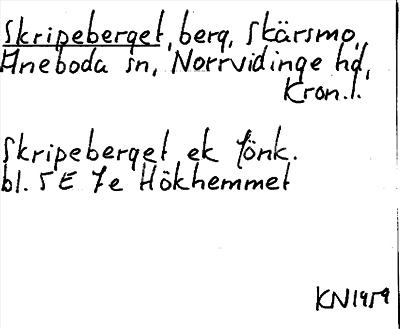 Skripeberget, berg, Skärsmo,
Aneboda sn, Norrvidinge hd,
Kron.l.
Skripeberget ek Jönk.
bl. 5 E 7e Hökhemmet
KN 1959